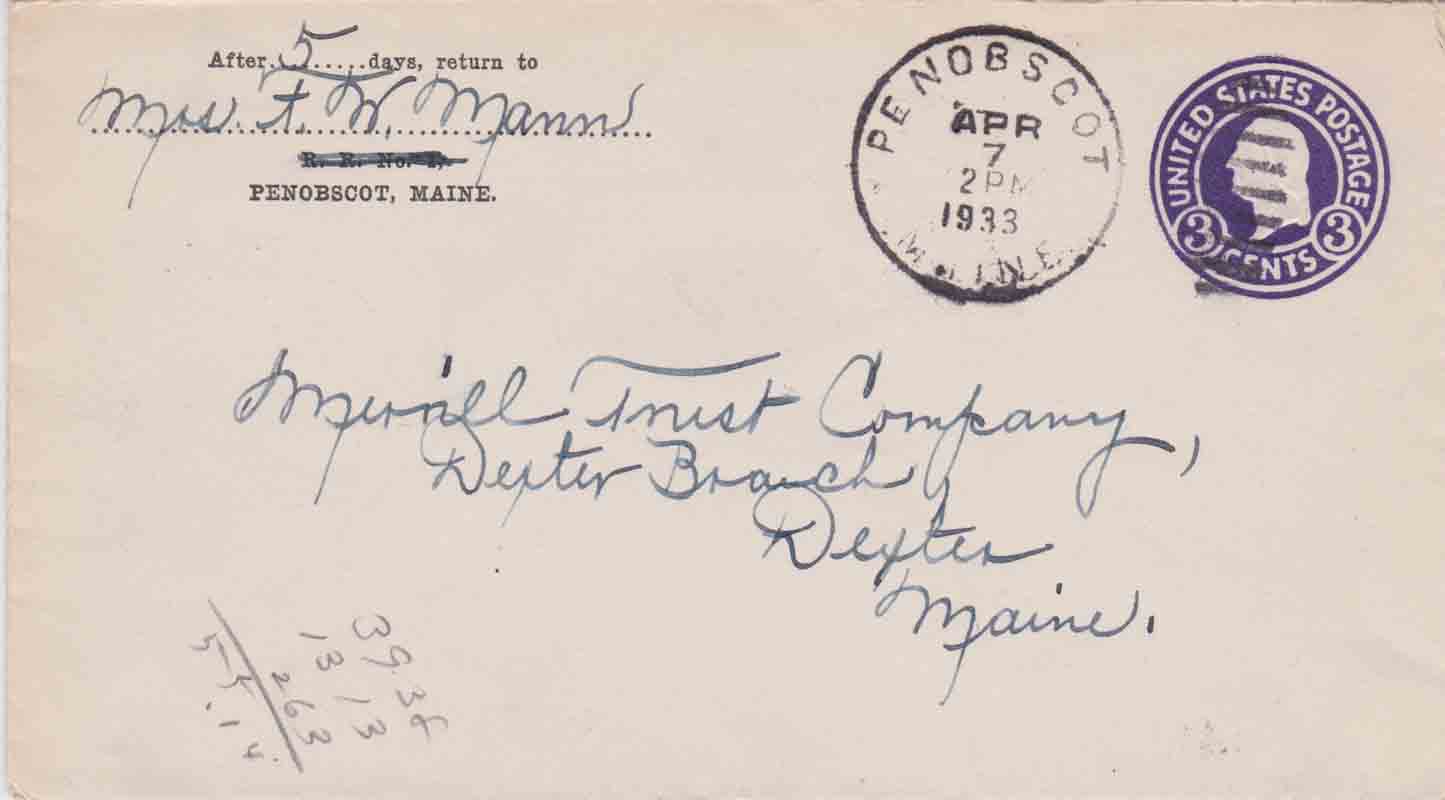 After 5 days, return to
Mrs. F. W. Mann
R. R. No. 1,
PENOBSCOT, MAINE.
PENOBSCOT
APR
7
2PM
1933
MAINE
UNITED STATES POSTAGE
3 CENTS 3
Merrill Trust Company,
Dexter Branch
Dexter
Maine.
39 36
13 13
2 63
55.12